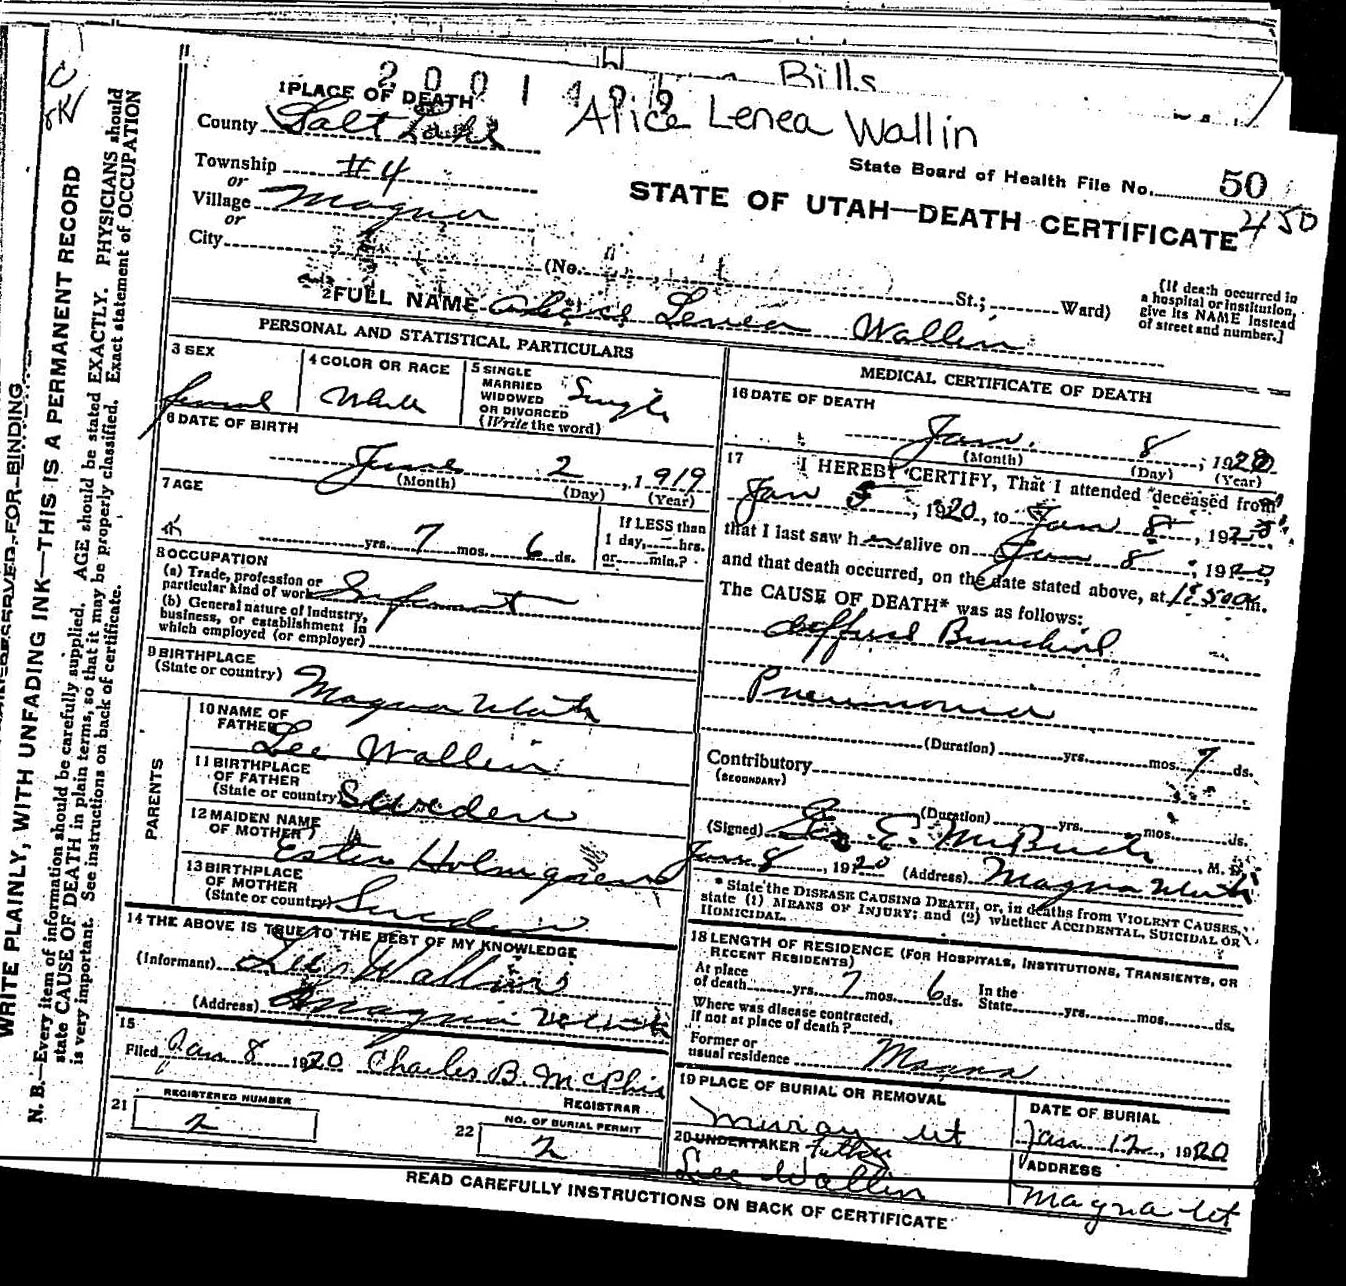 Bills
2001402
Alice Lenea Wallin
1 PLACE OF DEATH
County Salt Lake
State Board of Health File No. 50
450
Township #4
or
Village Magna
or
City
STATE OF UTAH—DEATH CERTIFICATE
(No. St.; Ward)
[If death occurred in
a hospital or institution,
give its NAME instead
of street and number.]
2 FULL NAME Alice Lenea Wallin
PERSONAL AND STATISTICAL PARTICULARS
3 SEX
female
4 COLOR OR RACE
White
5 SINGLE
MARRIED
WIDOWED
OR DIVORCED
(Write the word)
Single
6 DATE OF BIRTH
June 2, 1919
(Month) (Day) (Year)
7 AGE
yrs. 7 mos. 6 ds.
If LESS than
1 day, hrs.
or min.?
8 OCCUPATION
(a) Trade, profession or
particular kind of work Infant
(b) General nature of industry,
business, or establishment in
which employed (or employer)
9 BIRTHPLACE
(State or country) Magna Utah
PARENTS
10 NAME OF
FATHER Lee Wallin
11 BIRTHPLACE
OF FATHER
(State or country) Sweden
12 MAIDEN NAME
OF MOTHER Ester Holmgren
13 BIRTHPLACE
OF MOTHER
(State or country) Sweden
14 THE ABOVE IS TRUE TO THE BEST OF MY KNOWLEDGE
(Informant) Lee Wallin
(Address) Magna Utah
15
Filed Jan 8 1920 Charles B. McPhie
REGISTRAR
21
REGISTERED NUMBER
2
22
NO. OF BURIAL PERMIT
2
MEDICAL CERTIFICATE OF DEATH
16 DATE OF DEATH
Jan. 8, 1920
(Month) (Day) (Year)
17 I HEREBY CERTIFY, That I attended deceased from
Jan 5, 1920, to Jan 8, 1920,
that I last saw her alive on Jan 8, 1920,
and that death occurred, on the date stated above, at m.
The CAUSE OF DEATH* was as follows:
diffuse Bronchial
Pneumonia
(Duration) yrs. mos. 7 ds.
Contributory
(SECONDARY)
(Duration) yrs. mos. ds.
(Signed) Geo. E. McBride M. D.
Jan. 8, 1920 (Address) Magna Utah
* State the DISEASE CAUSING DEATH, or, in deaths from VIOLENT CAUSES,
state (1) MEANS OF INJURY; and (2) whether ACCIDENTAL, SUICIDAL OR
HOMICIDAL.
18 LENGTH OF RESIDENCE (FOR HOSPITALS, INSTITUTIONS, TRANSIENTS, OR
RECENT RESIDENTS)
At place
of death yrs. 7 mos. 6 ds. In the
State yrs. mos. ds.
Where was disease contracted,
if not at place of death?
Former or
usual residence Magna
19 PLACE OF BURIAL OR REMOVAL
Murray Ut
DATE OF BURIAL
Jan 12, 1920
20 UNDERTAKER Father
Lee Wallin
ADDRESS
Magna Ut
READ CAREFULLY INSTRUCTIONS ON BACK OF CERTIFICATE
MARGIN RESERVED FOR BINDING
WRITE PLAINLY, WITH UNFADING INK—THIS IS A PERMANENT RECORD
N. B.—Every item of information should be carefully supplied. AGE should be stated EXACTLY. PHYSICIANS should
state CAUSE OF DEATH in plain terms, so that it may be properly classified. Exact statement of OCCUPATION
is very important. See instructions on back of certificate.